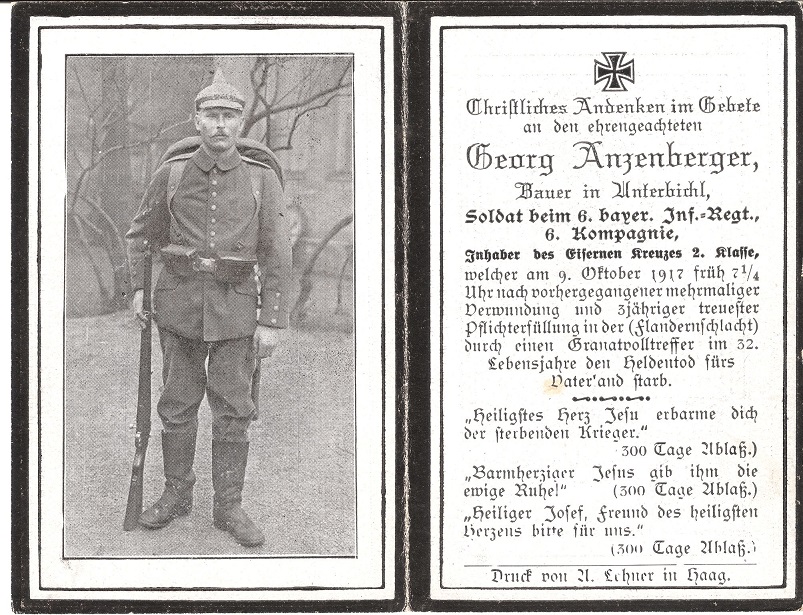 Christliches Andenken im Gebete
an den ehrengeachteten
Georg Anzenberger,
Bauer in Unterbichl,
Soldat beim 6. bayer. Inf.-Regt.,
6. Kompagnie,
Inhaber des Eisernen Kreuzes 2. Klasse,
welcher am 9. Oktober 1917 früh 7 1/4
Uhr nach vorhergegangener mehrmaliger
Verwundung und 3jähriger treuester
Pflichterfüllung in der (Flandernschlacht)
durch einen Granatvolltreffer im 32.
Lebensjahre den Heldentod fürs
Vaterland starb.
„Heiligstes Herz Jesu erbarme dich
der sterbenden Krieger.“
300 Tage Ablaß.)
„Barmherziger Jesus gib ihm die
ewige Ruhe!“ (300 Tage Ablaß.)
„Heiliger Josef, Freund des heiligsten
Herzens bitte für uns.“
(300 Tage Ablaß.)
Druck von A. Lehner in Haag.